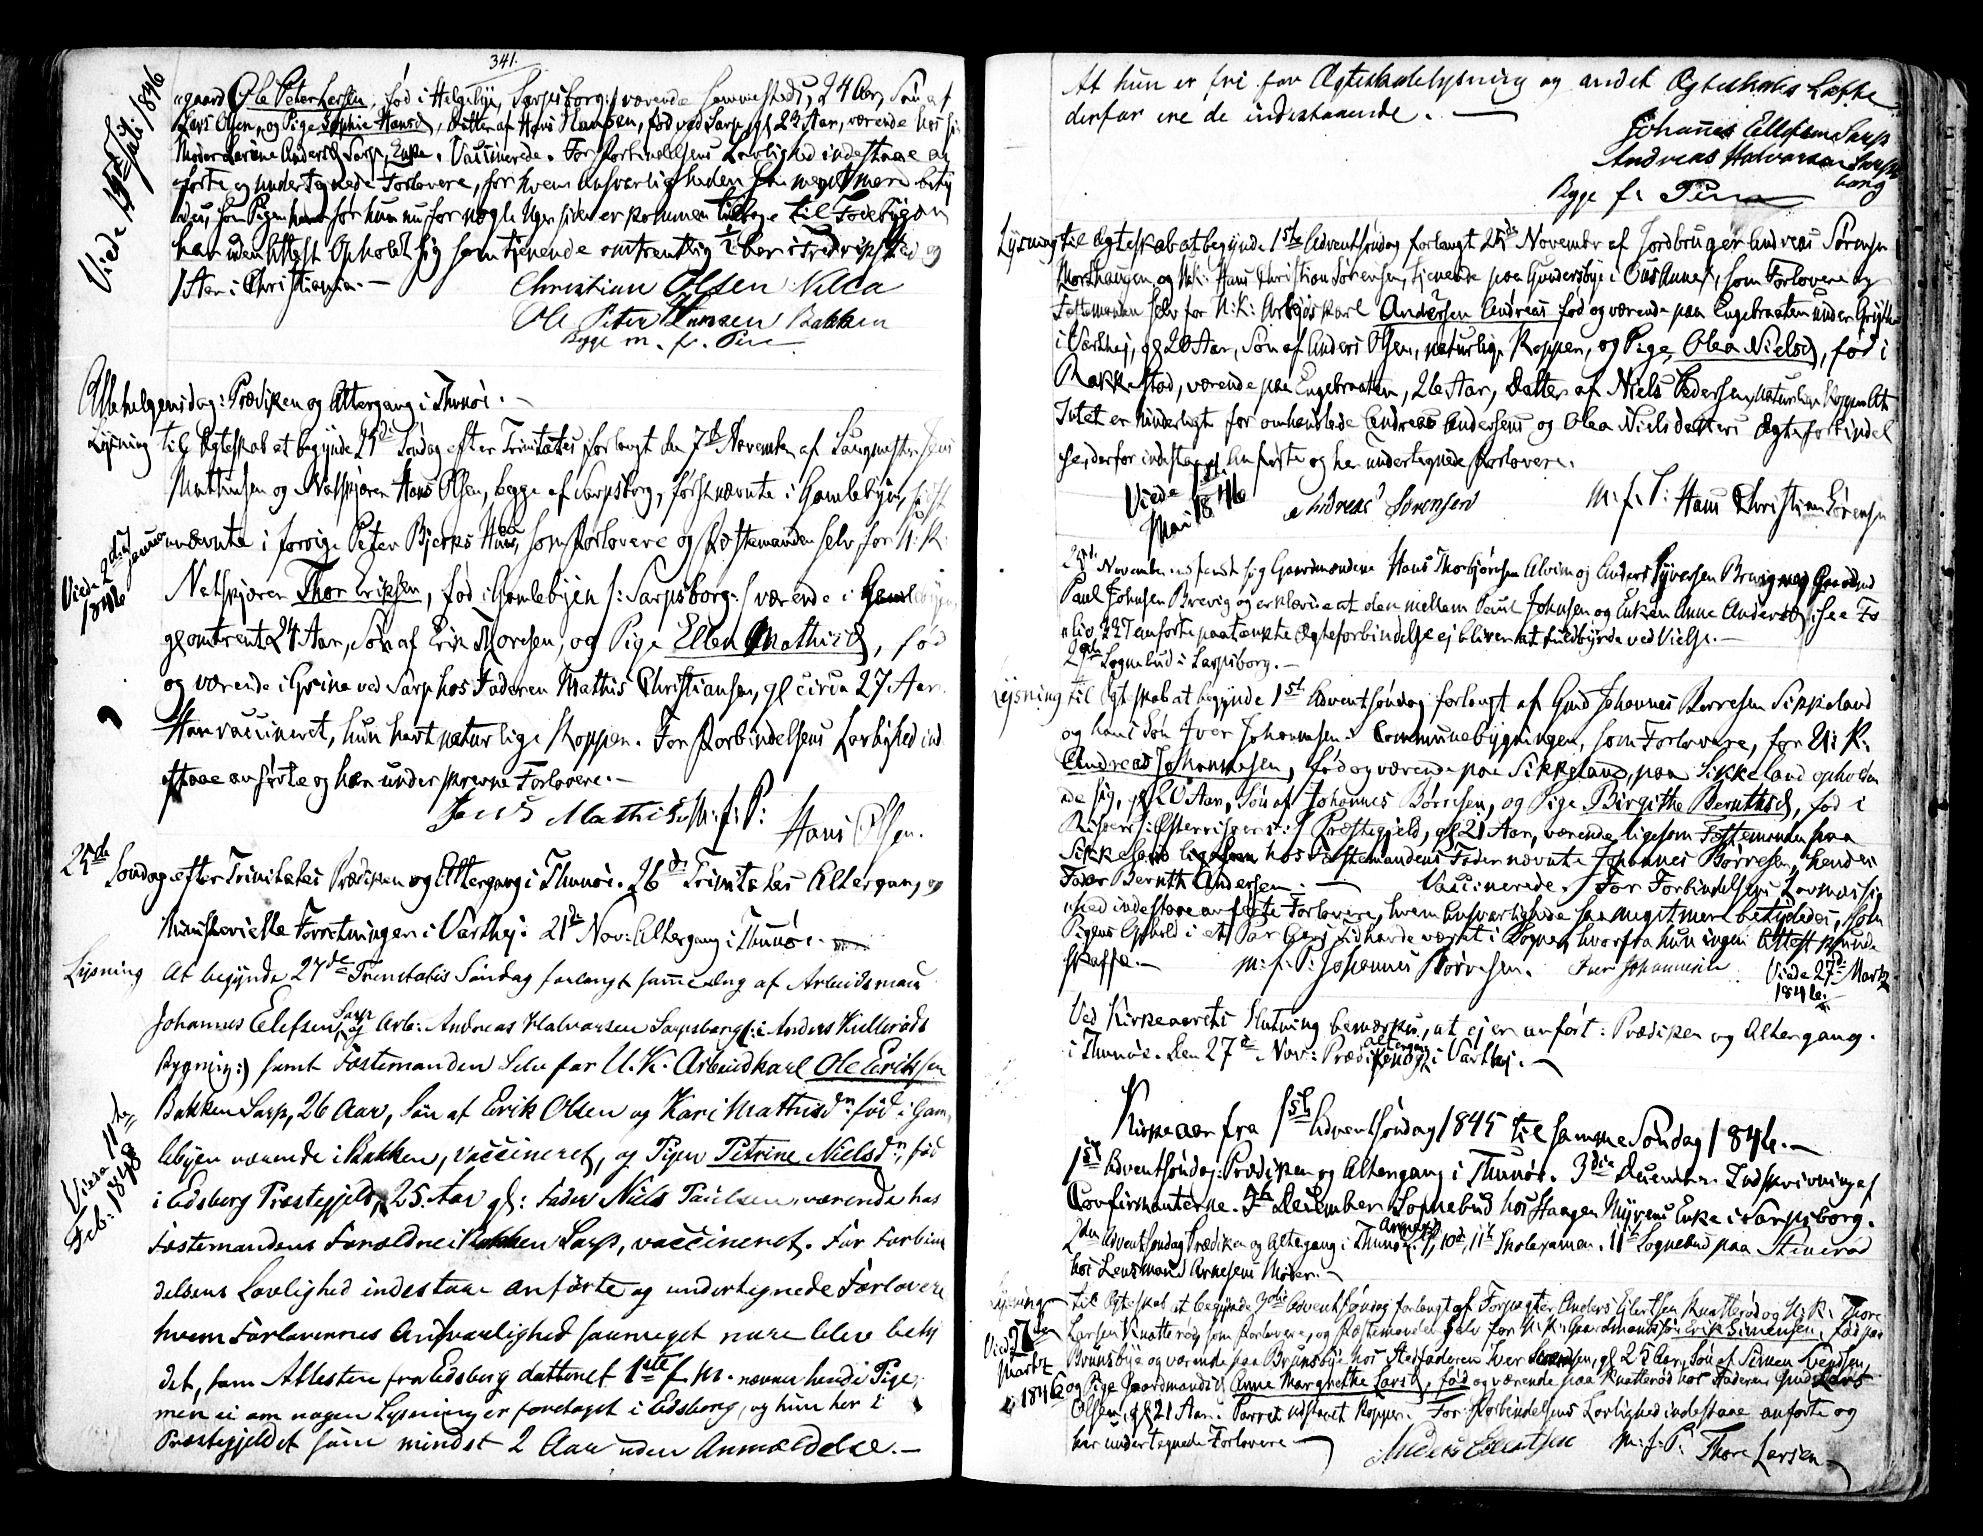 341.
Viede 19de Juli 1846
gaard Ole Peter Larsen, fød i Helgebye, Sarpsborg :/ værende sammesteds, 24 Aar, Søn af
Lars Olsen, og Pige Sophie Hansd, Datter af Hans Hansen, fød ved Sarp, gl 23 Aar, værende hos
Moder Enke. Vaccinerede. For Forbindelsens Lovlighed indestaae an
førte og undertegnede Forlovere, for hvem Ansvarligheden saa meget mere bety
des, som Pigen før hun nu for nogle Uger siden er kommen tilbage til Fødebygden
har uden Attest Opholdt sig som tjenende omtrentlig ½ Aar i Fredrikstad og
1 Aar i Christiania.—
Christian Olsen
Ole Peter Hansen Bakken
Begge m. f. Pen
Allehelgensdag: Prædiken og Altergang i Thunøe.—
Lysning til Ægteskab at begynde 25de Søndag efter Trinitates forlangt den 7de November af Jens
Mathisen og Natskjører Hans Olsen, begge af Sarpsborg, førstnævnte i Gamlebyen, sidst
nævnte i forrige Peter Bjerkes Huus, som Forlovere og Fæstemanden selv for U: K:
Viede 2den Januar 1846
Thor Eriksen, fød i Gamlebyen /: Sarpsborg :/ værende i Gamlebyen,
gl omtrent 24 Aar, Søn af Erik Thoresen, og Pige Ellen Mathisd, fød
og værende i Grina ved Sarp hos Faderen Mathis Christiansen, gl circa 27 Aar.
Han vaccineret, hun havt naturlige Kopper. For Forbindelsens Lovlighed ind
estaae anførte og her underskrevne Forlovere.—
Jens Mathisen M: f: P: Hans Olsen.
25de Søndag efter Trinitates Prædiken og Altergang i Thunøe. 26de Trinitates Altergang og
Ministerielle Forretninger i Varthej. 21de Nov: Altergang i Thunøe.
Lysning At begynde 27de Trinitatis Søndag forlangt samme dag af Arbeidsmand
Johannes Ellefsen Sarp og Arb: Andreas Halvorsen Sarpsborg (: i Anders Kullerøds
Bygning :) samt Fæstemanden Selv for U. K. Arbeidkarl Ole Eriksen
Bakken Sarp, 26 Aar, Søn af Erik Olsen og Kari Mathisdn: fød i Gam
lebyen værende i Bakken, vaccineret, og Pigen Petrine Nielsdn, fød
i Edsberg Præstegjeld, 25 Aar gl: Fader Niels Paulsen, værende hos
Viede 11te Feb: 1848
Fæstemandens Forældre i Bakken Sarp, vaccineret. For Forbin
delsens Lovlighed indestaae anførte og undertegnede Forlovere
hvem Forlovernes Ansvarlighed saameget mere blev bety
det, som Attesten fra Edsberg datteret 1ste f. M. nævner hende Pige,
men ei om nogen Lysning er foretaget i Edsberg, og hun her i
Præstegjeldet har mindst 2 Aar uden Anmeldelse.—
At hun er fri for Ægteskabslysning og andet Ægteskabs Løfte
derfor ere de indestaaende.—
Johannes Ellefsen Sarp
Andreas Halvorsen Sarps
borg
Begge f: Pen
Lysning til Ægteskab at begynde 1ste Adventsøndag forlangt 25de Novembr af Jordbruger Andreas Sørensen
og U: K: Hans Christian Sørensen, tjenende paa Gundersbye i som Forlovere og
Fæstemanden selv for U: K: Arbejdskarl Andersen Andreas fød og værende paa Engebraaten under
i Varthej, gl 20 Aar, Søn af Anders Olsen, naturlige Kopper, og Pige Olea Nielsd, fød i
Rakkestad, værende paa Engebraaten, 26 Aar, Datter af Niels Pedersen, naturlige Kopper. At
Intet er hinderligt for omhandlede Andreas Andersens og Olea Nielsdatters Ægteforbindel
se, derfor indestaae anførte og her undertegnede Forlovere.
Viede Mai 1846
Andreas Sørensen M: f: P: Hans Christian Sørensen
25de November indfandt sig Gaardmændene Hans Thorbjørnsen Alvim og Anders Syversen Brevig med Gaardmd
Paul Johnsen Brevig og erklærede at den mellem Paul Johnsen og Enken Anne Andersd, see Fo
lio 327 anførte paatænkte Ægteforbindelse ej bliver at fuldbyrde ved Vielse.—
29de Sognebud i Sarpsborg.—
Lysning til Ægteskab at begynde 1ste Adventsøndag forlangt af Gmd Johannes Børresen Sikkeland
og hans Søn Iver Johannesen i Communebygningen, som Forlovere, for U: K:
Andreas Johannesen, fød og værende paa Sikkeland, paa Sikkeland ophold
de sig, gl 20 Aar, Søn af Johannes Børresen, og Pige Birgithe Berntsd, fød i
Præstegjeld, gl 21 Aar, værende ligesom Fæstemanden paa
Sikkeland ligesom hos Fæstemandens Fader nævnte Johannes Børresen, hendes
Fader Bernth Andersen.— Vaccinerede. For Forbindelsens Lovmæssig
hed indestaae anførte Forlovere, hvem Ansvarlighede saa meget mere betydedes, som
Pigens Ophold i et Par Aars Tid havde været i Sognet, hvorfra hun ingen Attest kunde
skaffe.— M: f: P: Johannes Børresen. Iver Johannesen Viede 27de Marts 1846.
Ved Kirkeaarets Slutning bemærkes, at ej er anført: Prædiken og Altergang
i Thunøe. Den 27de Nov: Prædiken og Altergang i Varthej.—
Kirkeaar fra 1ste Adventsøndag 1845 til samme Søndag 1846.—
1ste Adventsøndag: Prædiken og Altergang i Thunøe. 3die December. Indskrivning af
Confirmanterne. December Sognebud hos Haagen Nyrens Enke i Sarpsborg.
2den Adventsøndag Prædiken og Altergang i Thunøe. 9, 10de, 11te Skoleexamen. 11te Sognebud paa Stenerød
hos Lensmand Arnesens Moder.—
Lysning til Ægteskab at begynde 3die Adventsøndag forlangt af Forpagter Anders Ejlertsen Knatterød og U: K: Thore
Larsen Knatterød, som Forlovere, og Fæstemanden selv for U: K: Gaardmandssøn Erik Simensen, fød paa
Viede 27de Marts 1846
Brunsbye og værende paa Brunsbye hos Stedfaderen Iver gl 25 Aar, Søn af Simen Svendsen,
og Pige Gaardmandsd Anne Marghrethe Larsd, fød og værende paa Knatterød hos Faderen Gmd Lars
Olsen, gl 21 Aar. Parret udstaaet Kopper. For Forbindelsens Lovlighed indestaae anførte og
her undertegnede Forlovere—
Anders Ejlertsen M: f: P: Thore Larsen